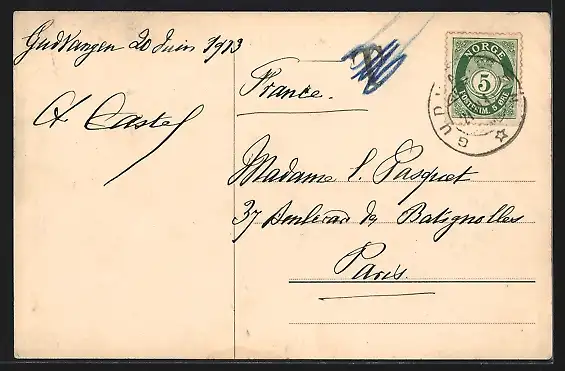 Gudvangen 20 Juin 1913
A Castel
France.
Madame L. Pasquet
37 Boulevard des Batignolles
Paris.
NORGE
5
POSTFRIM. 5 ØRE
GUD